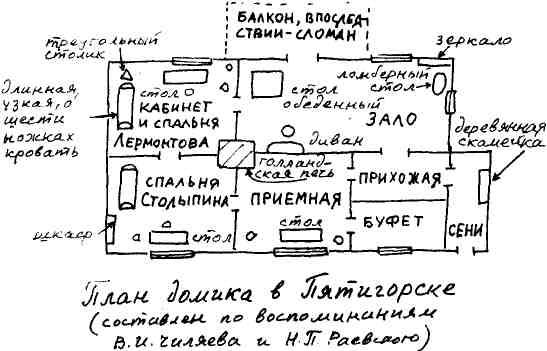 БАЛКОН, ВПОСЛЕД-
СТВИИ-СЛОМАН
треугольный
столик
зеркало
длинная,
узкая, о
шести
ножках
кровать
стол
КАБИНЕТ
И СПАЛЬНЯ
ЛЕРМОНТОВА
стол
обеденный
ломберный
стол
ЗАЛО
диван
деревянная
скамейка
голланд-
ская печь
СПАЛЬНЯ
СТОЛЫПИНА
ПРИЕМНАЯ
ПРИХОЖАЯ
БУФЕТ
СЕНИ
шкаф
стол
стол
План домика в Пятигорске
(составлен по воспоминаниям
В.И. Чиляева и Н.П. Раевского)